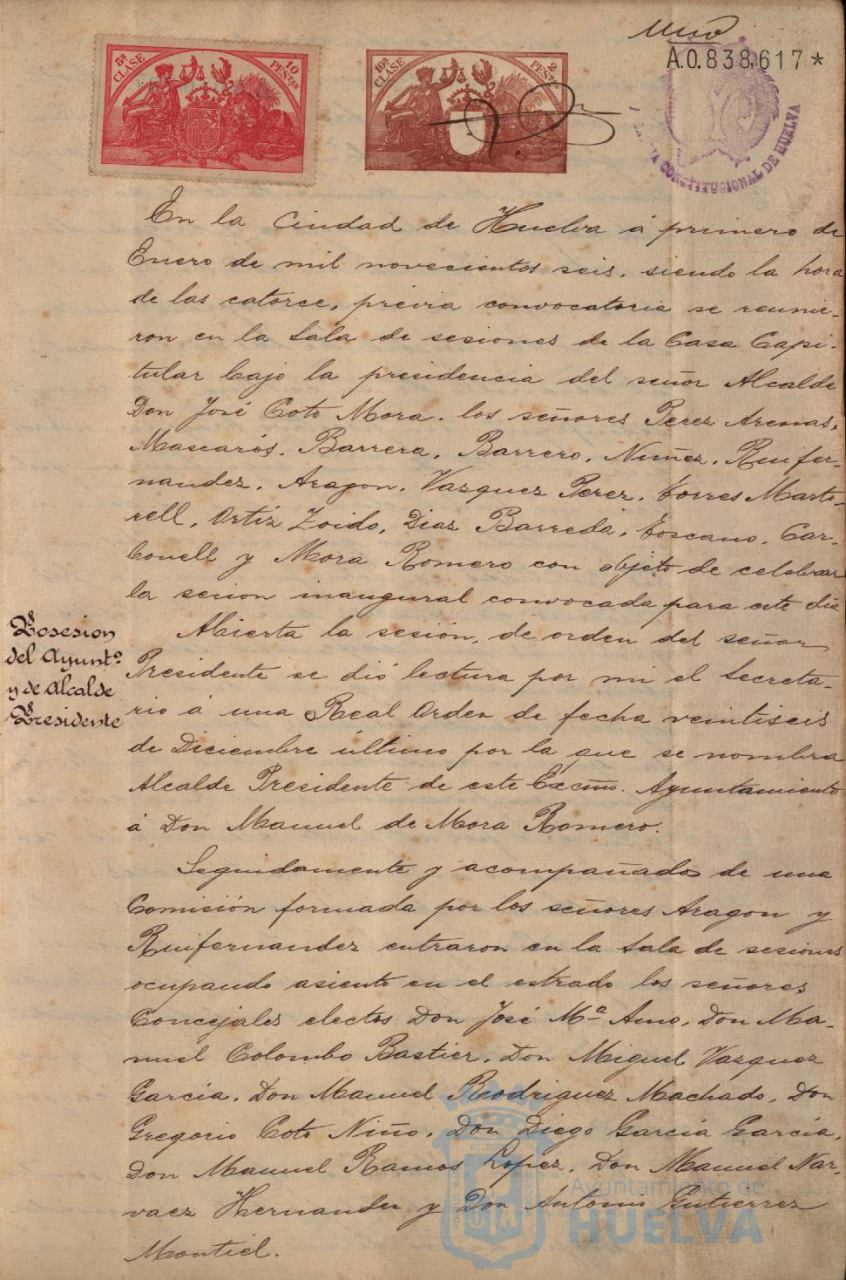 Uno
A.0.838,617*
5ª CLASE 10 PESETAS
10ª CLASE 2 PESETAS
CONSTITUCIONAL DE HUELVA
En la Ciudad de Huelva á primero de
Enero de mil novecientos seis, siendo la hora
de las catorce, prévia convocatoria se reunie-
ron en la Sala de sesiones de la Casa Capi-
tular bajo la presidencia del señor Alcalde
Don José Coto Mora. los señores Perez Arenas,
Mascarós. Barrera, Barrero, Nuñez, Ruifer-
nandez, Aragon, Vazquez Perez, Torres Marto-
rell, Ortiz Zoido, Diaz Barreda, Toscano, Car-
bonell y Mora Romero con objeto de celebrar
la sesion inaugural convocada para este dia
Posesion
del Ayuntº
y de Alcalde
Presidente
Abierta la sesión, de orden del señor
Presidente se dió lectura por mi el Secreta-
rio á una Real Orden de fecha veintiseis
de Diciembre último por la que se nombra
Alcalde Presidente de este Excmo. Ayuntamiento
á Don Manuel de Mora Romero.
Seguidamente y acompañados de una
Comisión formada por los señores Aragon y
Ruifernandez entraron en la Sala de sesiones
ocupando asiento en el estrado los señores
Concejales electos Don José Mª Amo, Don Ma-
nuel Colombo Bastier, Don Miguel Vazquez
García, Don Manuel Rodriguez Machado, Don
Gregorio Coto Niño, Don Diego García García,
Don Manuel Ramos Lopez, Don Manuel Nar-
vaez Hernander y Don Antonio Gutierrez
Montiel.
Ayuntamiento de
HUELVA